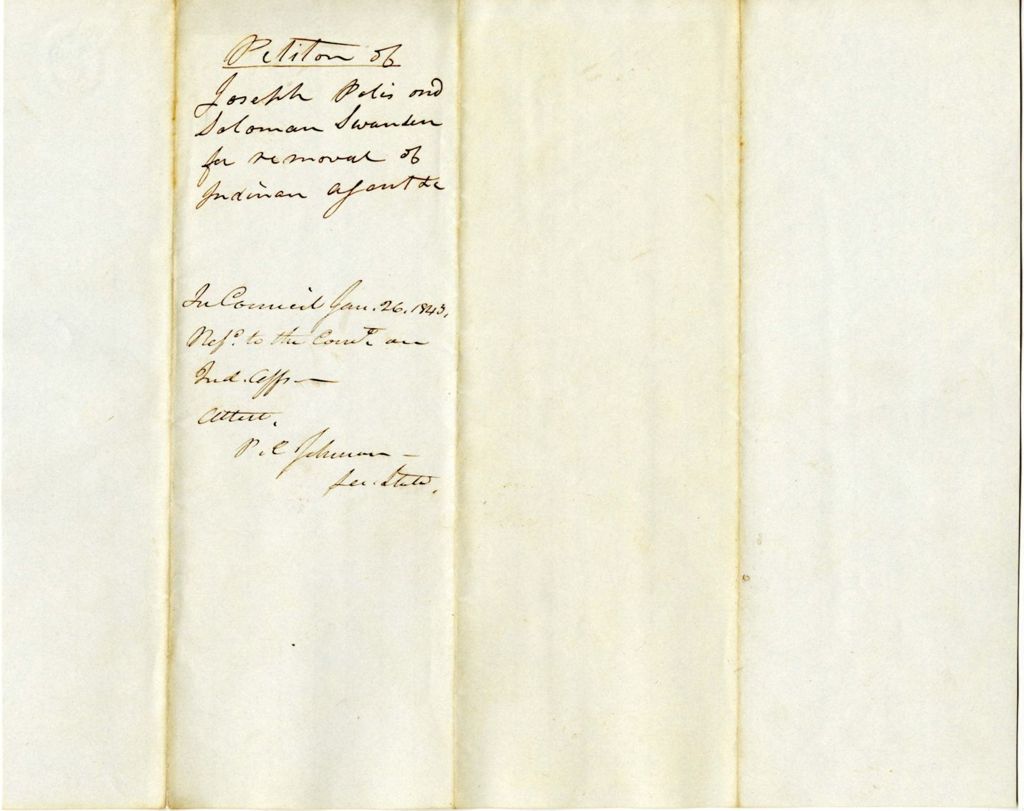 Petiton of
Joseph Polis and
Soloman Swanson
for removal of
Indinan agent &c
In Council Jan. 26. 1843,
Refd. to the Comte. on
Ind. Affs —
Attest.
P. C. Johnson —
Sec. State.